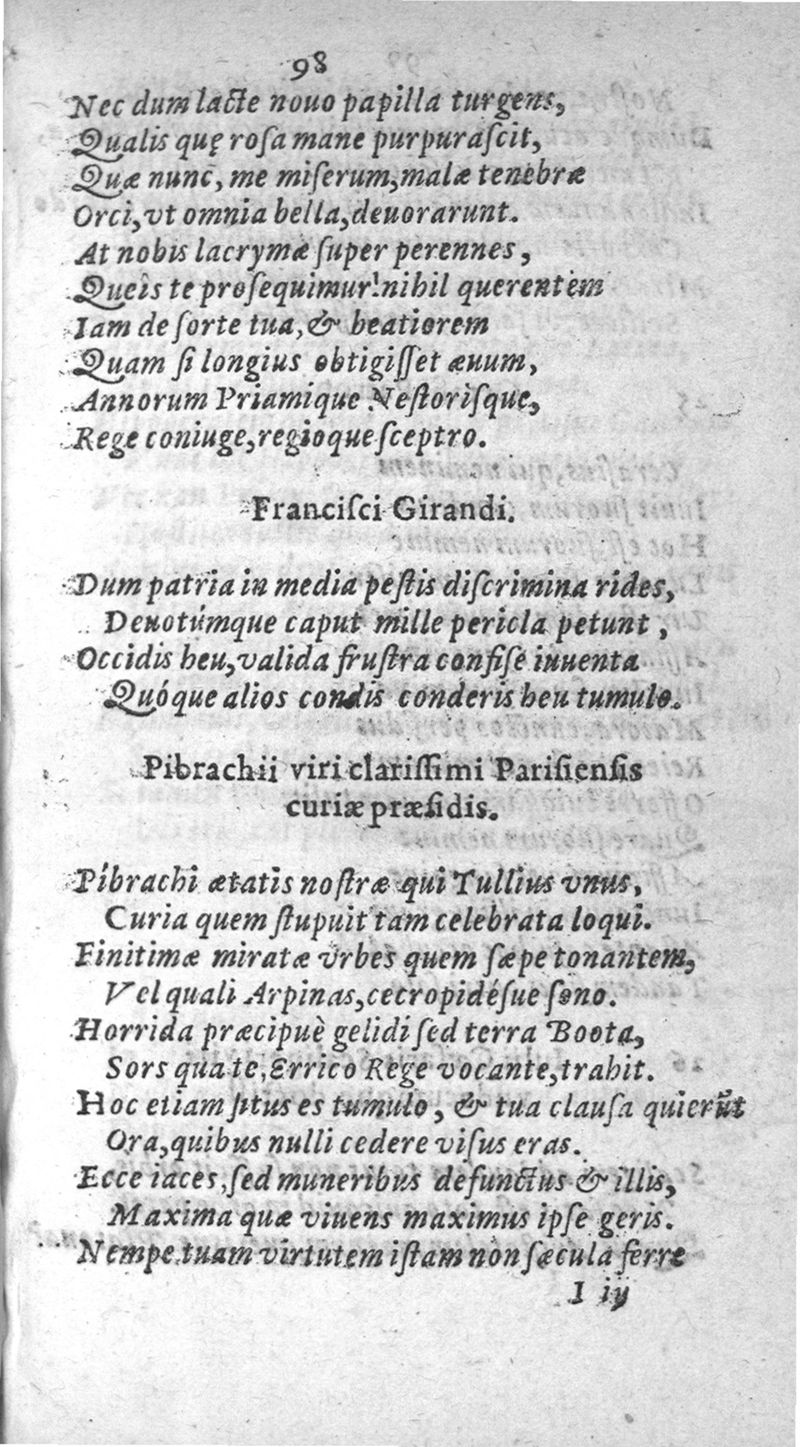 98
Nec dum lacte nouo papilla turgens,
Qualis quę roſa mane purpuraſcit,
Quæ nunc, me miſerum, malæ tenebræ
Orci, vt omnia bella, deuorarunt.
At nobis lacrymæ ſuper perennes,
Queîs te proſequimur! nihil querentem
Iam de ſorte tua, & beatiorem
Quam ſi longius obtigiſſet æuum,
Annorum Priamique Neſtoriſque,
Rege coniuge, regioque ſceptro.
Franciſci Girandi.
Dum patria in media peſtis diſcrimina rides,
Deuotúmque caput mille pericla petunt,
Occidis heu, valida fruſtra confiſe iuuenta
Quóque alios condis conderis heu tumulo.
Pibrachii viri clariſſimi Pariſienſis
curiæ præſidis.
Pibrachi ætatis noſtræ qui Tullius vnus,
Curia quem ſtupuit tam celebrata loqui.
Finitimæ miratæ vrbes quem ſæpe tonantem,
Vel quali Arpinas, cecropidéſue ſono.
Horrida præcipuè gelidi ſed terra Boota,
Sors qua te, Errico Rege vocante, trahit.
Hoc etiam ſitus es tumulo, & tua clauſa quierūt
Ora, quibus nulli cedere viſus eras.
Ecce iaces, ſed muneribus defunctus & illis,
Maxima quæ viuens maximus ipſe geris.
Nempe tuam virtutem iſtam non ſæcula ferre
I iij